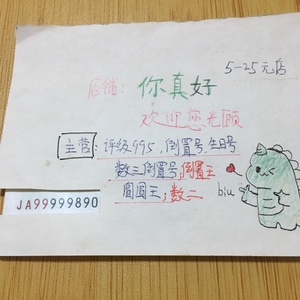 5-25元店
店铺：你真好
欢迎您光顾
主营：评级995，倒置号，生日号
数三倒置号，倒置王
圆圆王，数二
biu
JA99999890